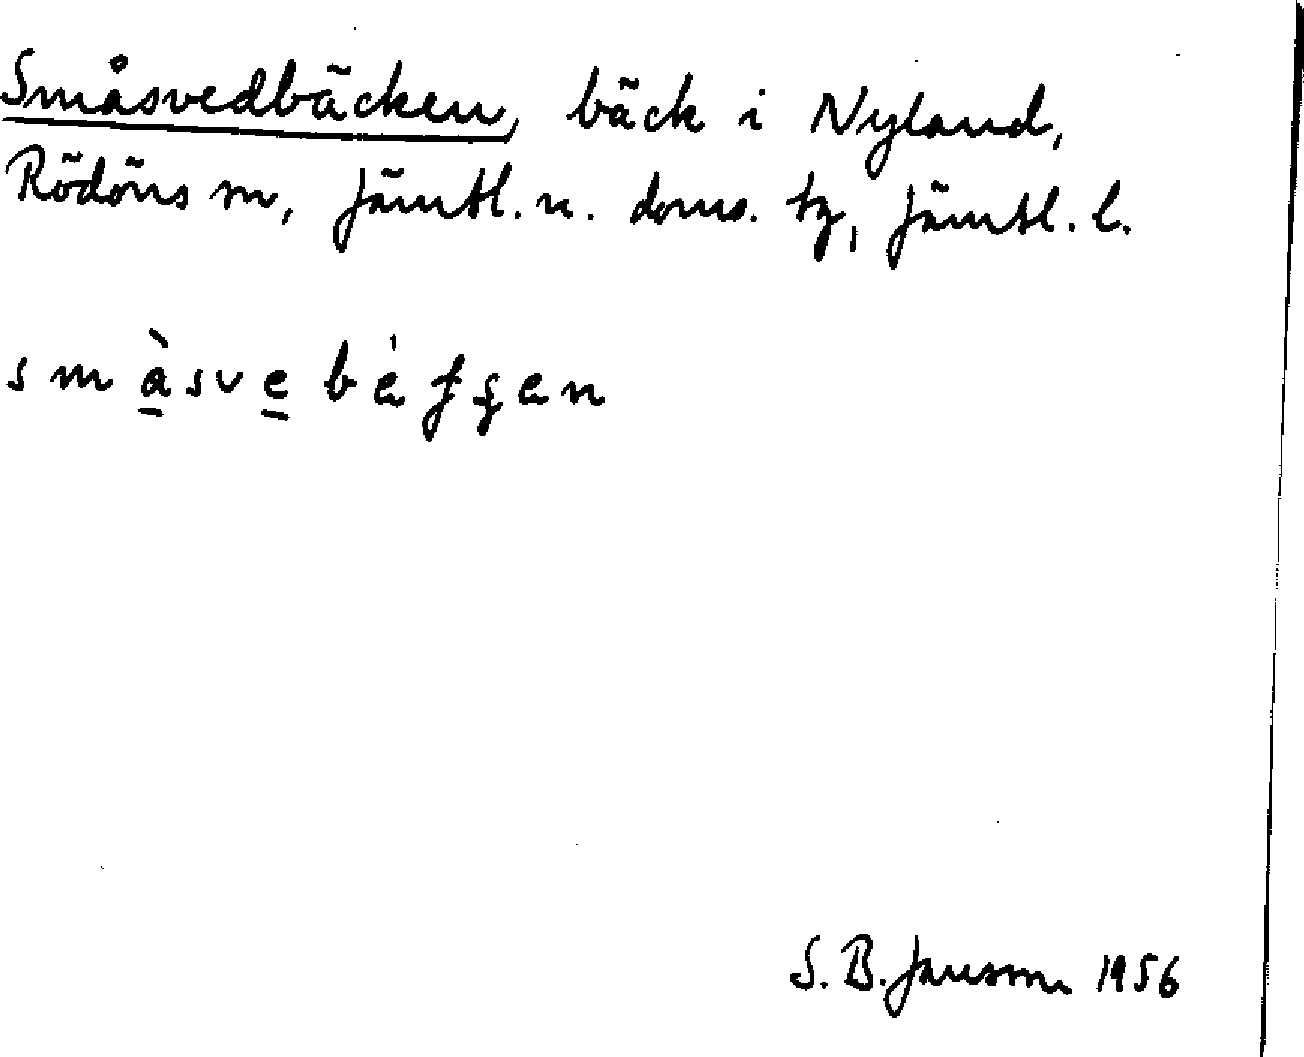 Småsvedbäcken, bäck i Nyland,
Rödöns sn, Jämtl. n. doms. tg, Jämtl. l.
S. B. Jansson 1956